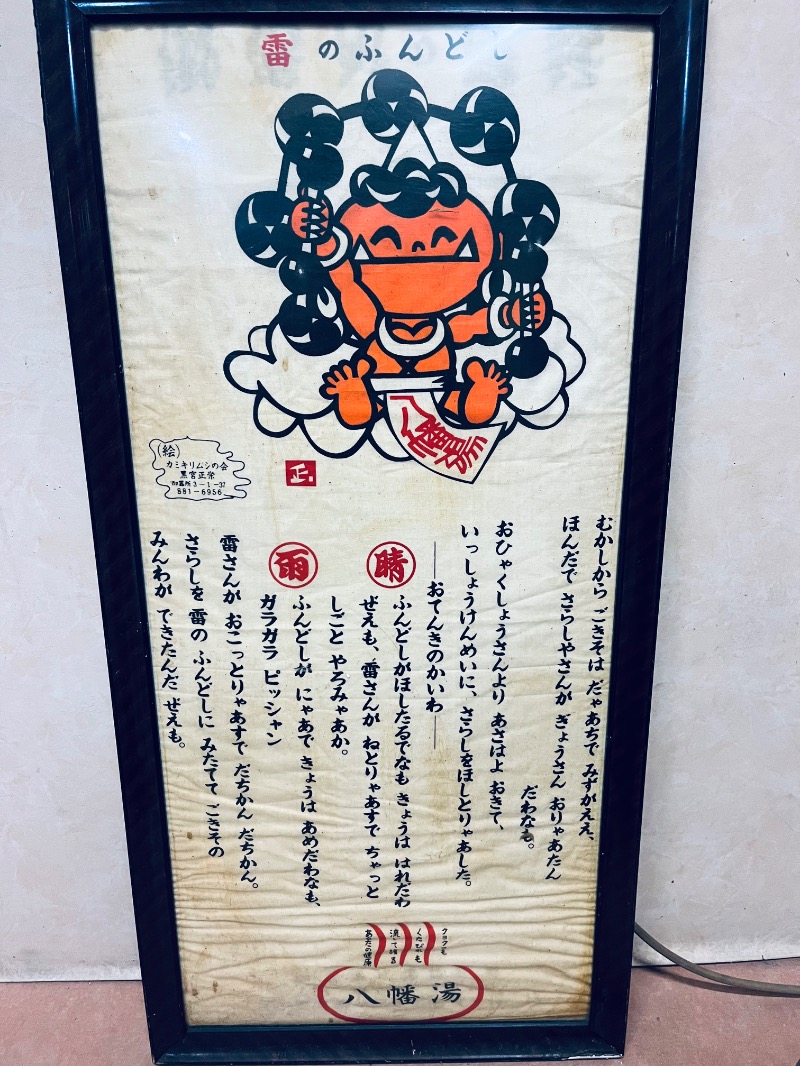 雷のふんどし
八幡湯
正
(絵)
カミキリムシの会
黒宮正栄
御器所3-1-37
881-6956
むかしから ごきそは だゃあちで みずがええ、
ほんだで さらしやさんが ぎょうさん おりゃあたん
だわなも。
おひゃくしょうさんより あさはよ おきて、
いっしょうけんめいに、さらしをほしとりゃあした。
――おてんきのかいわ――
晴
ふんどしがほしたるでなも きょうは はれだわ
ぜえも、雷さんが ねとりゃあすで ちゃっと
しごと やろみゃあか。
雨
ふんどしが にゃあで きょうは あめだわなも、
ガラガラ ピッシャン
雷さんが おこっとりゃあすで だちかん だちかん。
さらしを 雷の ふんどしに みたてて ごきその
みんわが できたんだ ぜえも。
くたびれも
流して
あすの健康
八幡湯